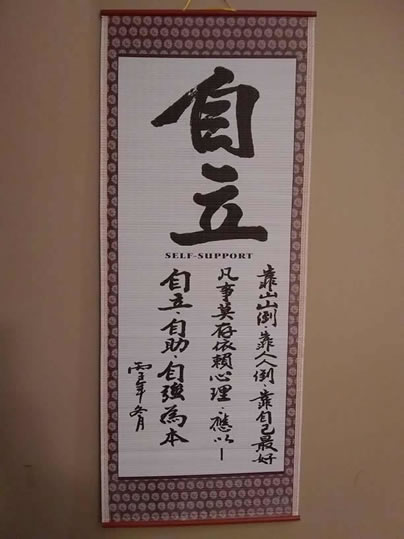 自立
SELF-SUPPORT
靠山山倒·靠人人倒·靠自己最好
凡事莫存依賴心理·應以—
自立·自助·自強為本